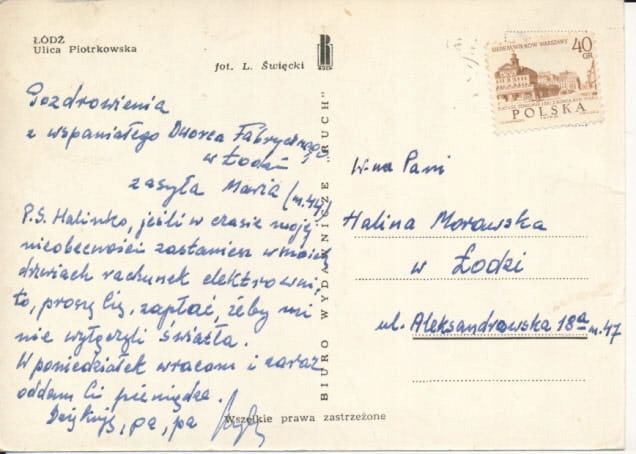 ŁÓDŹ
Ulica Piotrkowska
fot. L. Święcki
RUCH
Pozdrowienia
z wspaniałego Dworca Fabrycznego
w Łodzi
zasyła Maria (m.44)
P.S. Halinko, jeśli w czasie mojej
nieobecności zastaniesz w moich
drzwiach rachunek elektrowni,
to, proszę Cię, zapłać, żeby mi
nie wyłączyli światła.
W poniedziałek wracam i zaraz
oddam Ci pieniądze.
Dziękuję, pa, pa
BIURO WYDAWNICZE „RUCH"
Wszelkie prawa zastrzeżone
SIEDEM WIEKÓW WARSZAWY
40
GR
POLSKA
W-na Pani
Halina Morawska
w Łodzi
ul. Aleksandrowska 18a m.47